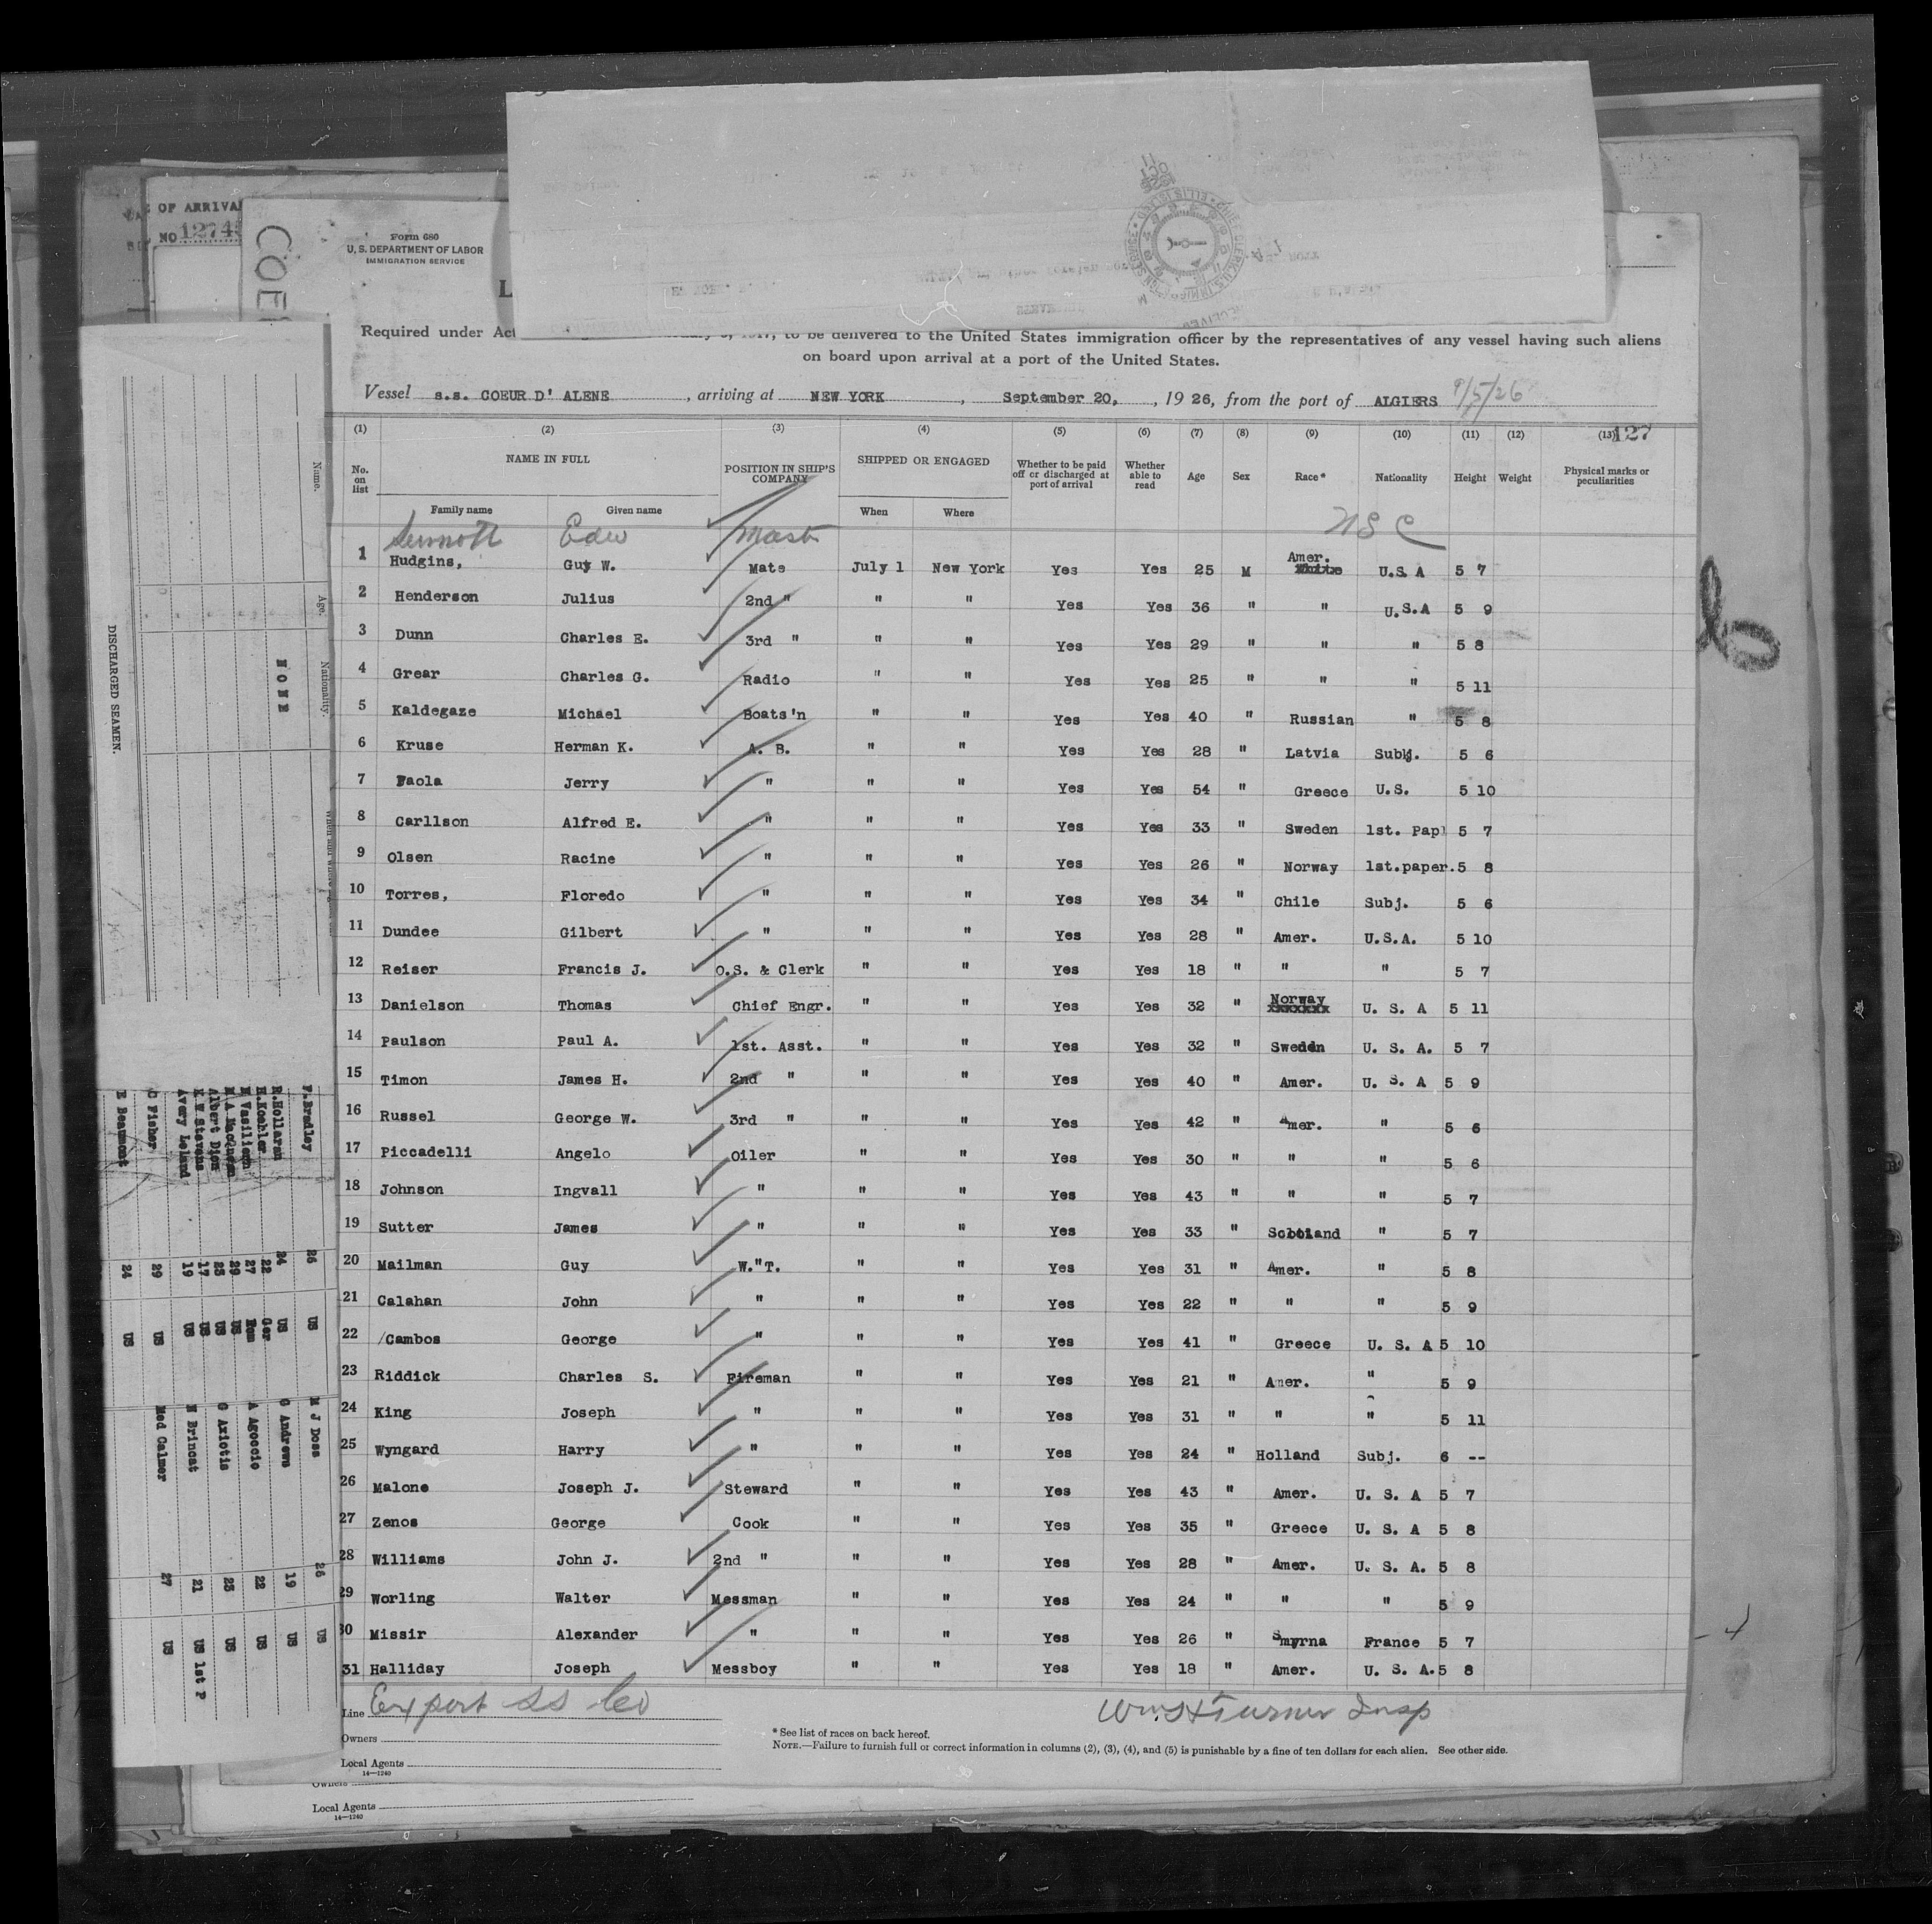 OF ARRIVAL
NO 1274
COE
Form 680
U. S. DEPARTMENT OF LABOR
IMMIGRATION SERVICE
L
OCT 11
Required under Act 1917, to be delivered to the United States immigration officer by the representatives of any vessel having such aliens
on board upon arrival at a port of the United States.
Vessel s.s. COEUR D' ALENE, arriving at NEW YORK, September 20, 1926, from the port of ALGIERS 9/5/26
(1) (2) (3) (4) (5) (6) (7) (8) (9) (10) (11) (12) (13) 127
No. on list NAME IN FULL POSITION IN SHIP'S COMPANY SHIPPED OR ENGAGED Whether to be paid off or discharged at port of arrival Whether able to read Age Sex Race* Nationality Height Weight Physical marks or peculiarities
Family name Given name When Where
Edw Mast USC
1 Hudgins, Guy W. Mate July 1 New York Yes Yes 25 M Amer. White U.S.A 5 7
2 Henderson Julius 2nd " " " Yes Yes 36 " " U.S.A 5 9
3 Dunn Charles E. 3rd " " " Yes Yes 29 " " " 5 8
4 Grear Charles G. Radio " " Yes Yes 25 " " " 5 11
5 Kaldegaze Michael Boats'n " " Yes Yes 40 " Russian " 5 8
6 Kruse Herman K. A. B. " " Yes Yes 28 " Latvia Subj. 5 6
7 Faola Jerry " " " Yes Yes 54 " Greece U.S. 5 10
8 Carllson Alfred E. " " " Yes Yes 33 " Sweden 1st. Pap 5 7
9 Olsen Racine " " " Yes Yes 26 " Norway 1st.paper. 5 8
10 Torres, Floredo " " " Yes Yes 34 " Chile Subj. 5 6
11 Dundee Gilbert " " " Yes Yes 28 " Amer. U.S.A. 5 10
12 Reiser Francis J. O.S. & Clerk " " Yes Yes 18 " " " 5 7
13 Danielson Thomas Chief Engr. " " Yes Yes 32 " Norway xxxxxxx U. S. A 5 11
14 Paulson Paul A. 1st. Asst. " " Yes Yes 32 " Sweden U. S. A. 5 7
15 Timon James H. 2nd " " " Yes Yes 40 " Amer. U. S. A 5 9
16 Russel George W. 3rd " " " Yes Yes 42 " Amer. " 5 6
17 Piccadelli Angelo Oiler " " Yes Yes 30 " " " 5 6
18 Johnson Ingvall " " " Yes Yes 43 " " " 5 7
19 Sutter James " " " Yes Yes 33 " Scotland " 5 7
20 Mailman Guy W."T. " " Yes Yes 31 " Amer. " 5 8
21 Calahan John " " " Yes Yes 22 " " " 5 9
22 /Cambos George " " " Yes Yes 41 " Greece U. S. A 5 10
23 Riddick Charles S. Fireman " " Yes Yes 21 " Amer. " 5 9
24 King Joseph " " " Yes Yes 31 " " " 5 11
25 Wyngard Harry " " " Yes Yes 24 " Holland Subj. 6 --
26 Malone Joseph J. Steward " " Yes Yes 43 " Amer. U. S. A 5 7
27 Zenos George Cook " " Yes Yes 35 " Greece U. S. A 5 8
28 Williams John J. 2nd " " " Yes Yes 28 " Amer. U. S. A. 5 8
29 Worling Walter Messman " " Yes Yes 24 " " " 5 9
30 Missir Alexander " " " Yes Yes 26 " Smyrna France 5 7
31 Halliday Joseph Messboy " " Yes Yes 18 " Amer. U. S. A. 5 8
Line Export SS Co
Wm Turner Insp
Owners
*See list of races on back hereof.
NOTE.—Failure to furnish full or correct information in columns (2), (3), (4), and (5) is punishable by a fine of ten dollars for each alien. See other side.
Local Agents
14—1240
Owners
Local Agents
14—1240
DISCHARGED SEAMEN.
Name. Age. Nationality.
NONE
F.Bradley 26 US
R.Hollaran 24 US
H.Koehler 22 Ger
N Vasiliech 27 Rom
M A MacQueen 29 US
Albert Dion 25 US
E.W.Stevens 17 US
Avery Leland 19 US
C Fisher 29 US
E Beaumont 24 US
M J Doss 26 US
G Andrews 19 US
A Agoccio 22 US
G Axiotis 25 US
N Brincat 21 US 1st P
Med Calmer 27 US